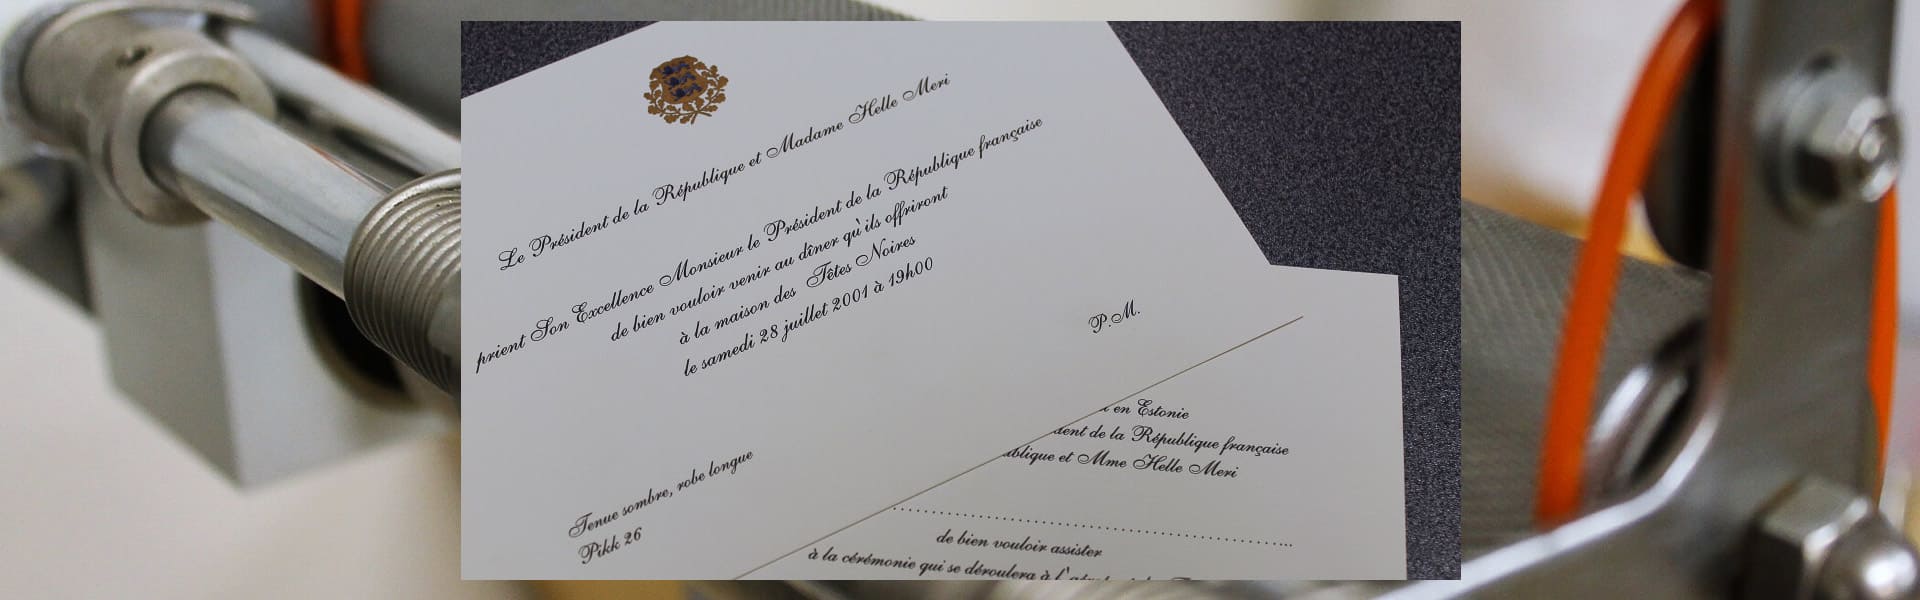 Le Président de la République et Madame Helle Meri
prient Son Excellence Monsieur le Président de la République française
de bien vouloir venir au dîner qu'ils offriront
à la maison des Têtes Noires
le samedi 28 juillet 2001 à 19h00
P.M.
Tenue sombre, robe longue
Pikk 26
en Estonie
dent de la République française
blique et Mme Helle Meri
de bien vouloir assister
à la cérémonie qui se déroulera à